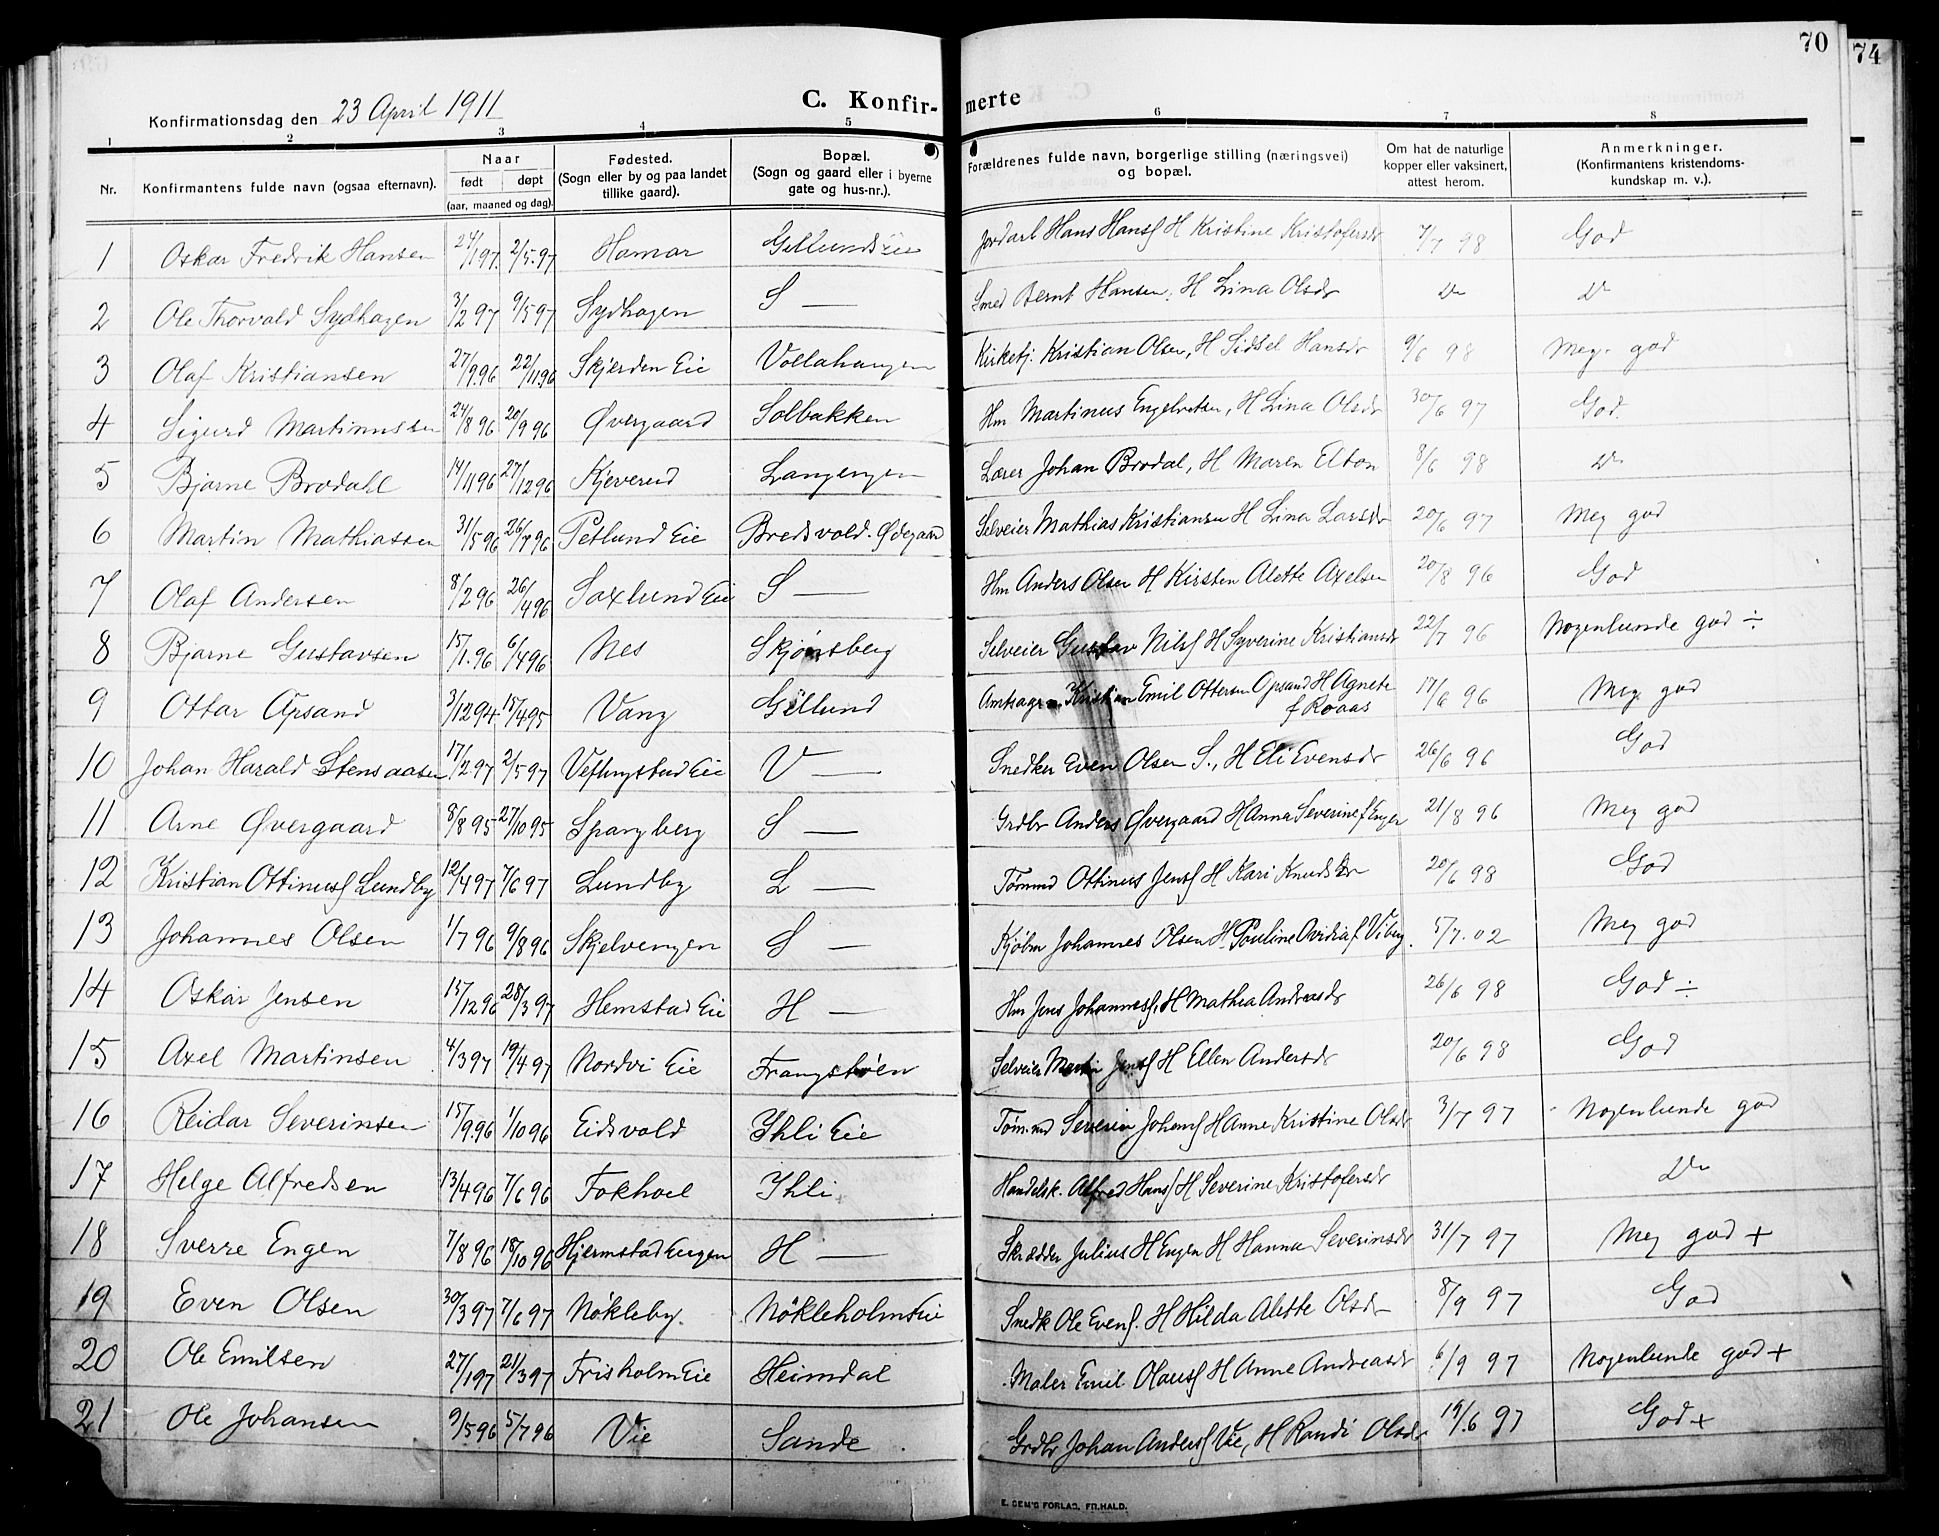 70
74
Konfirmationsdag den 23 April 1911
C. Konfir-
merte
1 2 3 4 5 6 7 8
Nr.
Konfirmantens fulde navn (ogsaa efternavn).
Naar
født døpt
(aar, maaned og dag).
Fødested.
(Sogn eller by og paa landet
tillike gaard).
Bopæl.
(Sogn og gaard eller i byerne
gate og hus-nr.).
Forældrenes fulde navn, borgerlige stilling (næringsvei)
og bopæl.
Om hat de naturlige
kopper eller vaksinert,
attest herom.
Anmerkninger.
(Konfirmantens kristendoms-
kundskap m. v.).
1 Oskar Fredrik Hansen 24/1 97. 2/5.97 Hamar Gillunds Eie Jordarb Hans Hans H Kristine Kristofersdr 7/7 98 God
2 Ole Thorvald Sydhagen 3/2 97 9/5 97 Sydhagen S — Smed Bernt Hansen, H Lina Olsdr Do Do
3 Olaf Kristiansen 27/9.96 22/11 96 Skjerden Eie Vollahaugen Kirketj. Kristian Olsen, H Sidsel Hansdr 9/6 98 Meg. god
4 Sigurd Martinussen 24/8 96 20/9 96 Øvergaard Solbakken Hm Martinus Engelretsen, H Lina Olsdr 30/6 97 God.
5 Bjarne Brodahl 14/11 96 27/12 96 Kjeverud Langengen Lærer Johan Brodal, H Maren Elton 8/6 98 Do
6 Martin Mathiassen 31/5 96 26/7 96 Petlund Eie Bredsvold. Ødegaard Selveier Mathias Kristiansen H Lina Larsdr 20/6 97 Meg god
7 Olaf Andersen 8/2 96 26/4 96 Saxlund Eie S — Hm Anders Olsen H Kirsten Alette Axelsen 20/8 96 God
8 Bjarne Gustavsen 15/1.96 6/4 96 Nes Skjønsberg Selveier Gustav Nils H Syverine Kristiansdr 22/7 96 Nogenlunde god ÷
9 Ottar Opsand 3/12 94 15/4 95 Vang Gillund Kristian Emil Ottersen Opsand H Agnete
f Roaas 17/6 96 Meg god
10 Johan Harald Stensaasen 17/2 97 2/5 97 Veflingstad Eie V — Snedker Even Olsen S., H Eli Evensdr 26/6 96 God
11 Arne Øvergaard 8/8 95 27/10 95 Spangberg S — Grdbr Anders Øvergaard H Anna Severine f Enger 21/8 96 Meg god
12 Kristian Ottinus Lundby 12/4 97 7/6 97 Lundby L — Tømmd Ottinus Jens H Kari Knudsdr 20/6 98 God
13 Johannes Olsen 1/7 96 9/8 96 Skjelvengen S — Kjøbm Johannes Olsen H Pauline Ovidia f Viberg. 5/7.02 Meg god
14 Oskar Jensen 15/12 96 28/3 97 Hemstad Eie H — Hm Jens Johannes, H Mathea Andreasdr 26/6 98 God ÷
15 Axel Martinsen 4/3 97 19/4 97 Nordvi Eie Frangstøen Selveier Martin Jens H Ellen Andersdr 20/6 98 God
16 Reidar Severinsen 15/9.96 1/10 96 Eidsvold Ihli Eie Tømmd Severin Johans H Anne Kristine Olsdr 3/7 97 Nogenlunde god
17 Helge Alfredsen 13/4 96 7/6 96 Fokhoel Ihli Handelsk. Alfred Hans H Severine Kristofersdr Do
18 Sverre Engen 7/8 96 18/10 96 Hjermstad Engen H — Skrædder Julius H Engen H Hanna Severinsdr 31/7 97 Meg god +
19 Even Olsen 30/3 97 7/6 97 Nøkleby. Nøkleholm Eie Snedk Ole Evens. H Hilda Alette Olsdr 8/9 97 God
20 Ole Emilsen 27/1 97 21/3 97 Frisholm Eie Heimdal Maler Emil Olaus H Anne Andreasdr 6/9 97 Nogenlunde god +
21 Ole Johansen 9/5 96 5/7 96 Vie Sande Grdbr Johan Anders Vie, H Randi Olsdr 19/6 97 God +
E. SEM'S FORLAG, FR.HALD.